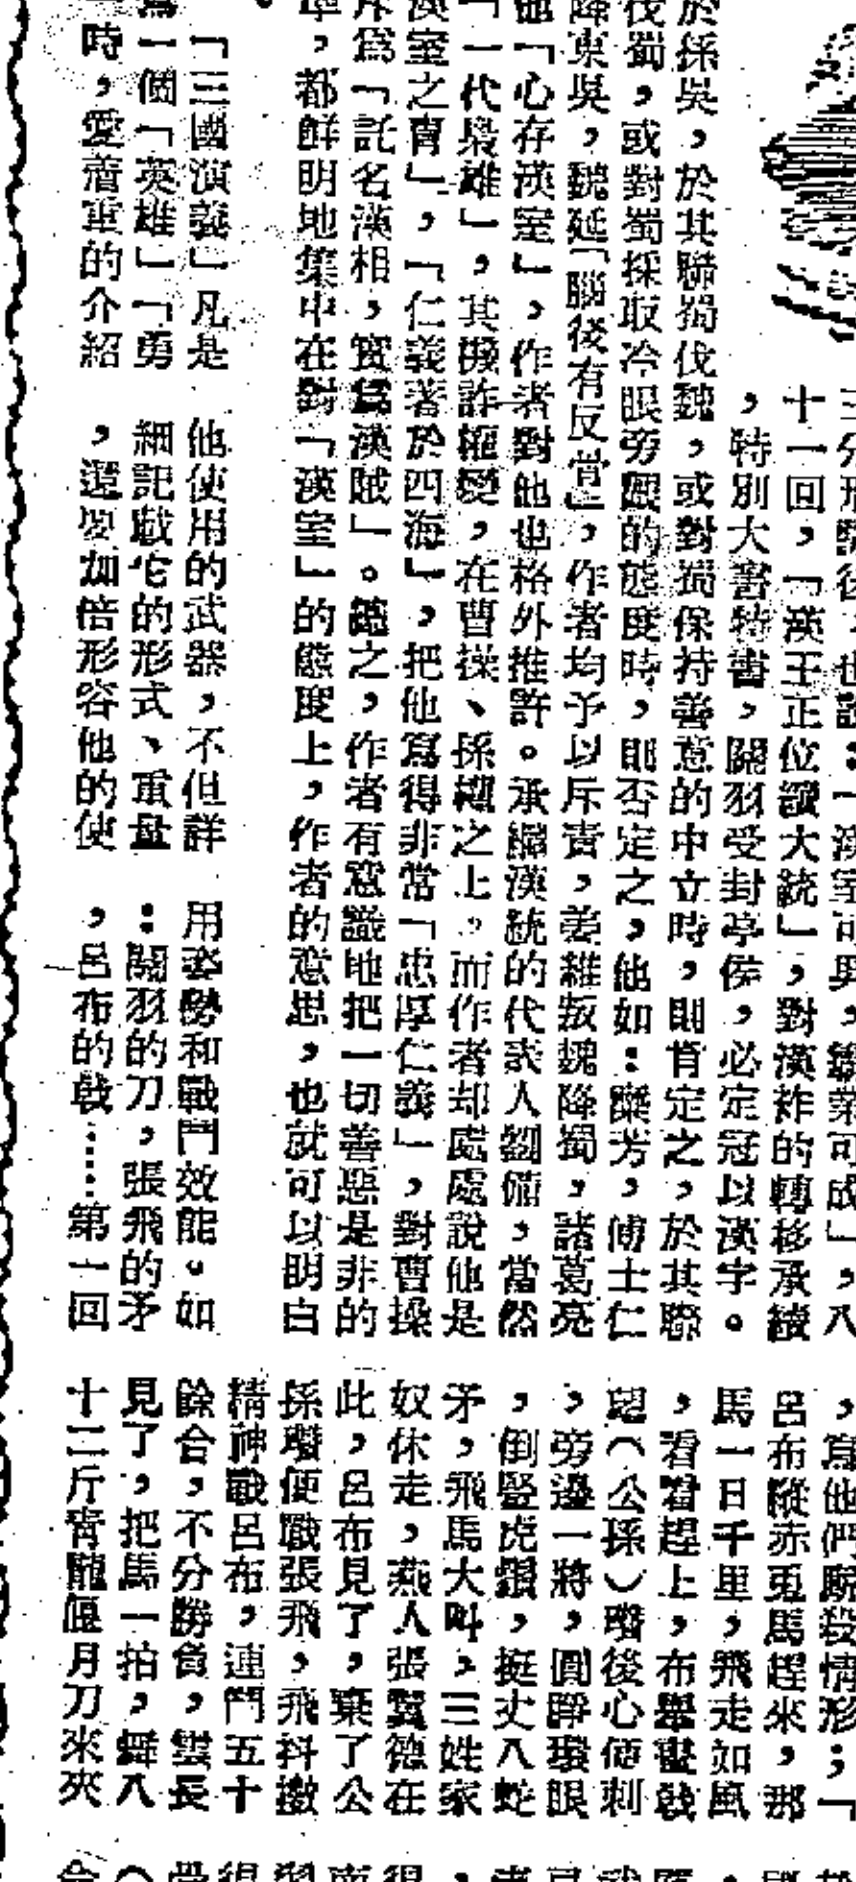 三分形勢後，也說：「漢室可興，鑼業可成」，八
十一回，「漢王正位讀大統」，對漢祚的轉移承續
，特別大書特書，關羽受封亭侯，必定冠以漢字。
於孫吳，於其聯蜀伐魏，或對蜀保持善意的中立時，則肯定之，於其聯
伐蜀，或對蜀採取冷眼旁觀的態度時，則否定之，他如：糜芳，傅士仁
降東吳，魏延「腦後有反骨」，作者均予以斥責，姜維叛魏降蜀，諸葛亮
他「心存漢室」，作者對他也格外推許。承繼漢統的代表人劉備，當然
「一代梟雄」，其機詐權變，在曹操、孫權之上，而作者却處處說他是
漢室之冑」，「仁義著於四海」，把他寫得非常「忠厚仁義」，對曹操
斥爲「託名漢相，實爲漢賊」。總之，作者有意識地把一切善惡是非的
準，都鮮明地集中在對「漢室」的態度上，作者的意思，也就可以明白
。
「三國演義」凡是
爲一個「英雄」「勇
時，愛着重的介紹
他使用的武器，不但詳
細記載它的形式、重量
，還要加倍形容他的使
用姿勢和戰鬥效能。如
：關羽的刀，張飛的矛
，呂布的戟……第一回
，寫他們厮殺情形；「
呂布縱赤兎馬趕來，那
馬一日千里，飛走如風
，看看趕上，布舉畫戟
望（公孫）瓚後心便刺
，旁邊一將，圓睜環眼
，倒豎虎鬚，挺丈八蛇
矛，飛馬大叫，三姓家
奴休走，燕人張翼德在
此，呂布見了，棄了公
孫瓚便戰張飛，飛抖擻
精神戰呂布，連鬥五十
餘合，不分勝負，雲長
見了，把馬一拍，舞八
十二斤靑龍偃月刀來夾